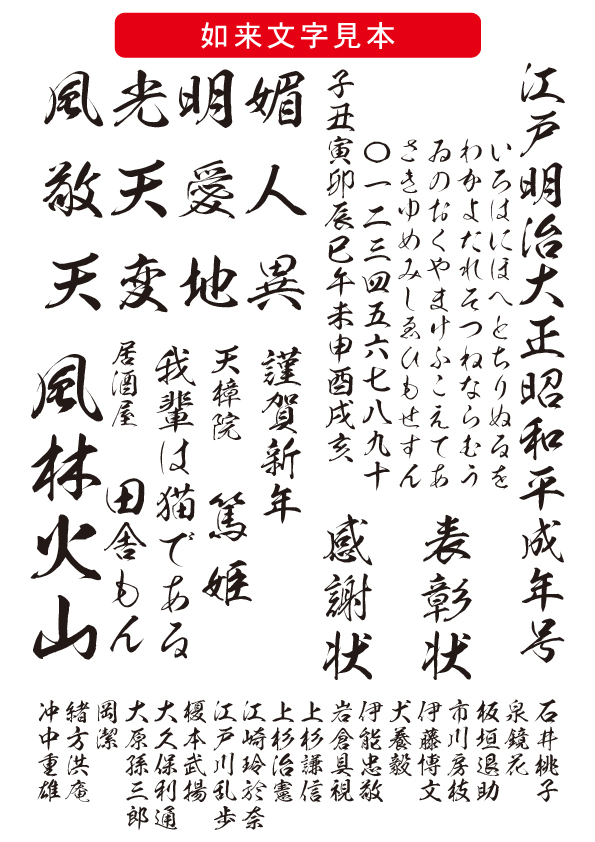 如来文字見本
江戸明治大正昭和平成年号
いろはにほへとちりぬるを
わかよたれそつねならむう
ゐのおくやまけふこえてあ
さきゆめみしゑひもせすん
〇一二三四五六七八九十
子丑寅卯辰巳午未申酉戌亥
表彰状
感謝状
媚人異
明愛地
光天変
風敬天
謹賀新年
天樟院 篤姫
我輩は猫である
居酒屋 田舎もん
風林火山
石井桃子
泉鏡花
板垣退助
市川房枝
伊藤博文
犬養毅
伊能忠敬
岩倉具視
上杉謙信
上杉治憲
江崎玲於奈
江戸川乱歩
榎本武揚
大久保利通
大原孫三郎
岡潔
緒方洪庵
沖中重雄